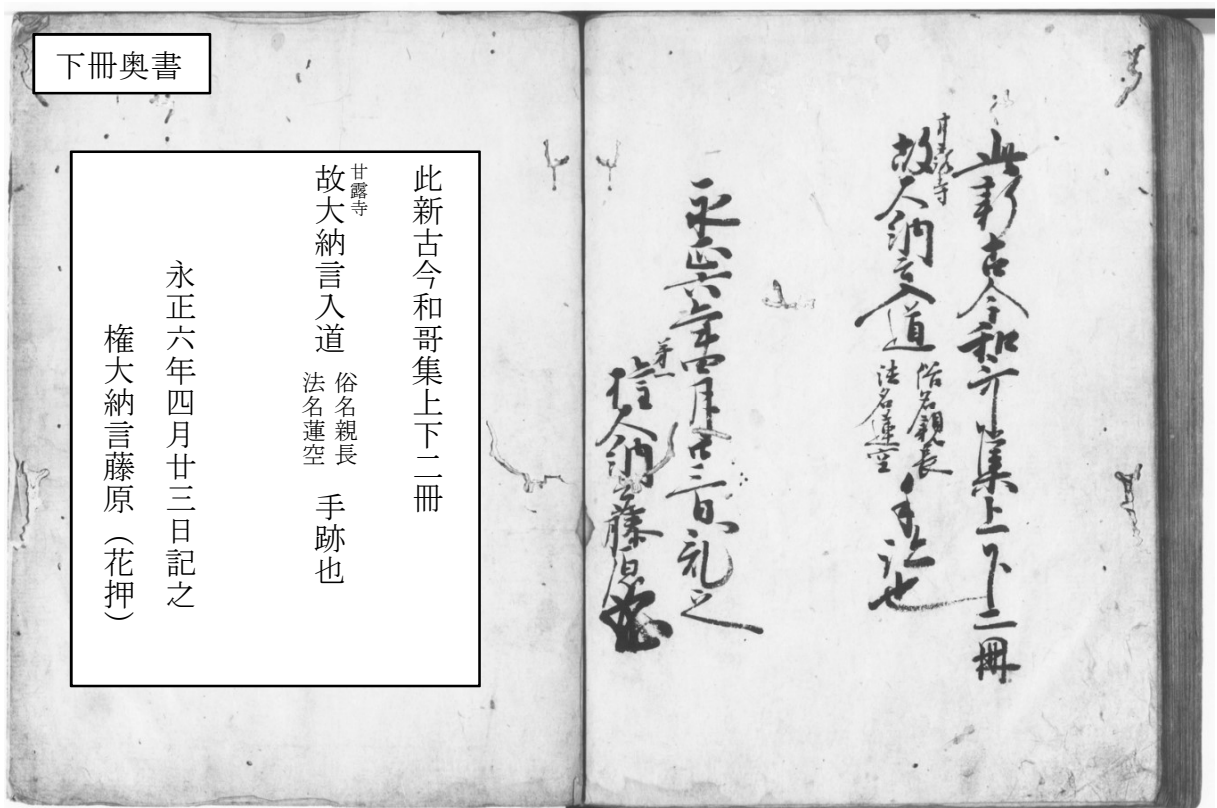 下冊奥書
此新古今和哥集上下二冊
甘露寺
故大納言入道 俗名親長 法名蓮空 手跡也
永正六年四月廿三日記之
権大納言藤原（花押）
此新古今和哥集上下二冊
甘露寺
故大納言入道 俗名親長 法名蓮空 手跡也
永正六年四月廿三日記之
権大納言藤原